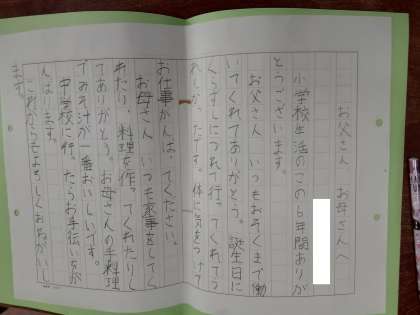 お父さん お母さんへ
小学校生活のこの6年間ありが
とうございます。
お父さん いつもおそくまで働
いてくれてありがとう。誕生日に
くらずしにつれて行ってくれてう
れしかったです。体に気をつけて
お仕事がんばってください。
お母さん いつも家事をしてく
れたり、料理を作ってくれたりし
てありがとう。お母さんの手料理
でみそ汁が一番おいしいです。
中学校に行ったらお手伝いをが
んばります。
これからもよろしくおねがいし
ます。